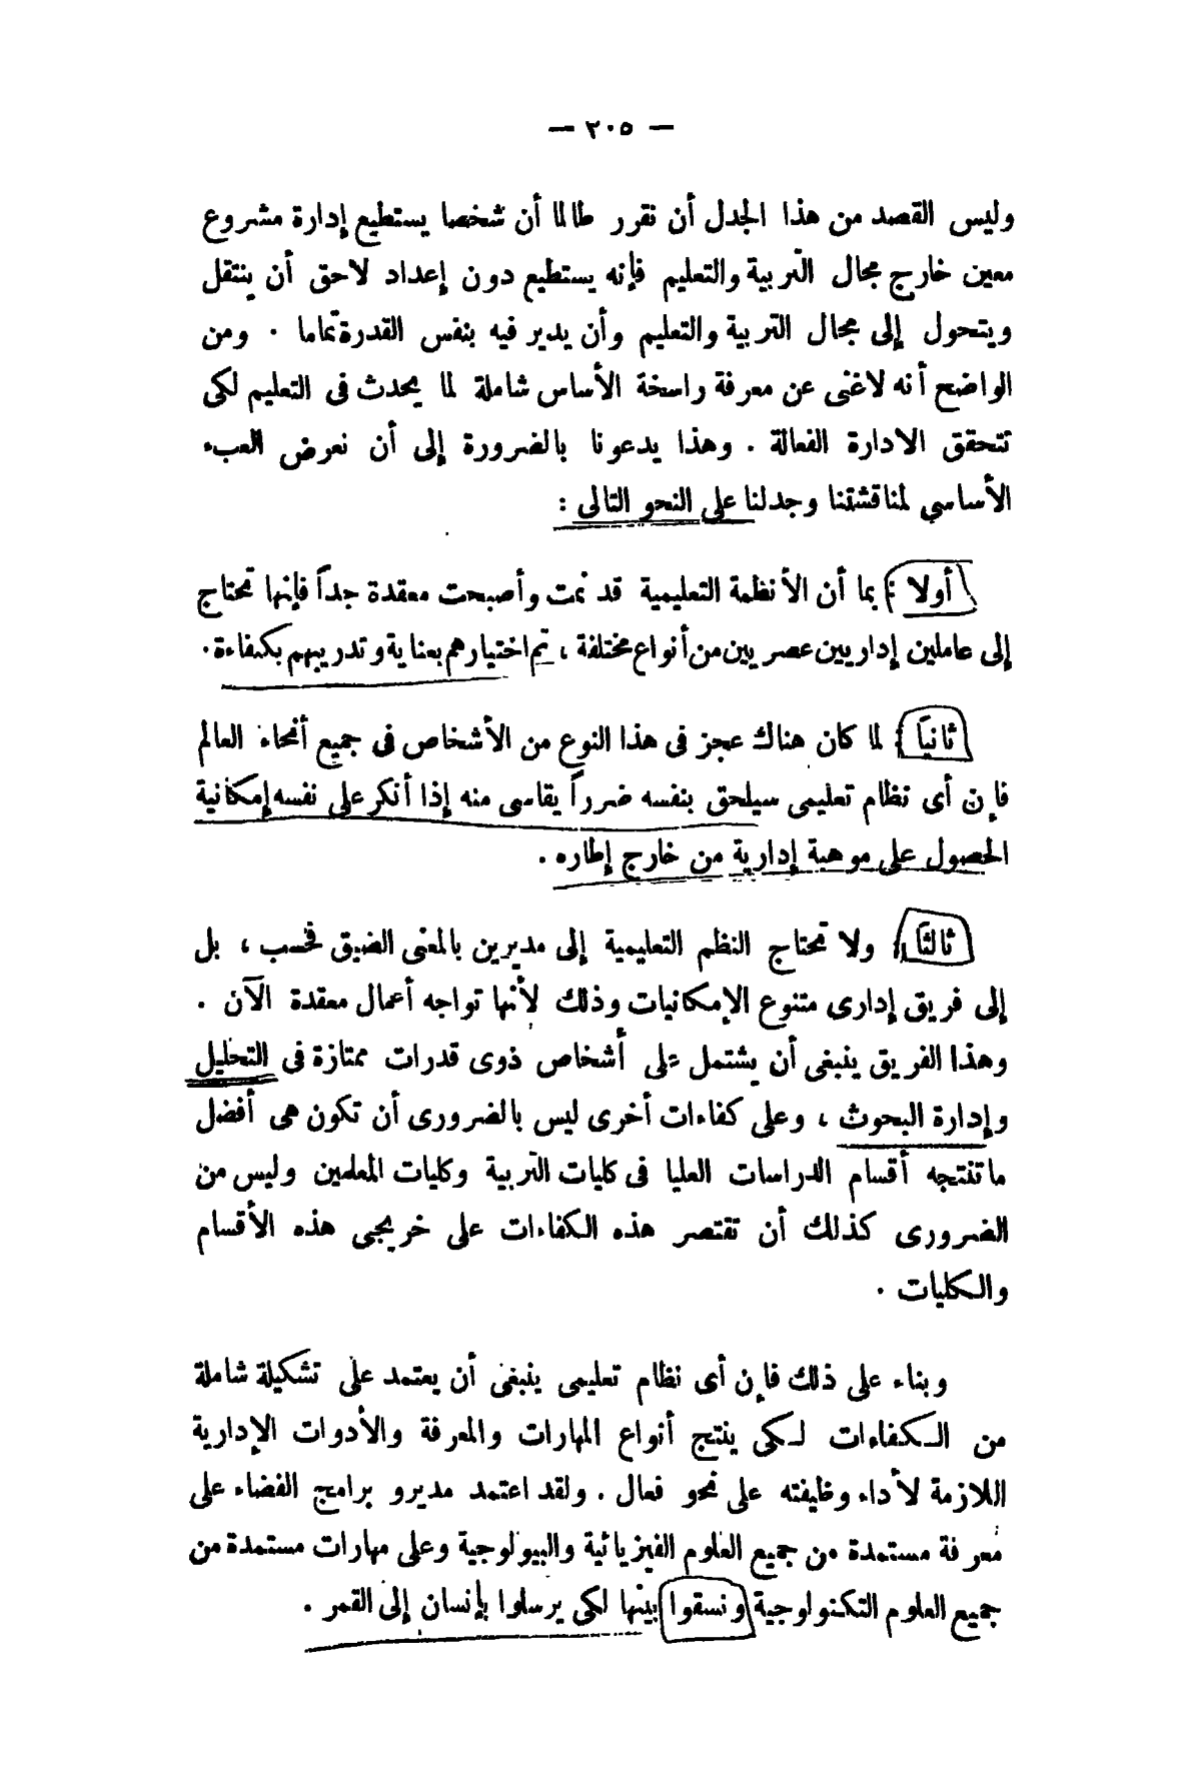 — ٢٠٥ —
وليس القصد من هذا الجدل أن نقرر طالما أن شخصا يستطيع إدارة مشروع
معين خارج مجال التربية والتعليم فإنه يستطيع دون إعداد لاحق أن ينتقل
ويتحول إلى مجال التربية والتعليم وأن يدير فيه بنفس القدرة تماما . ومن
الواضح أنه لاغنى عن معرفة راسخة الأساس شاملة لما يحدث فى التعليم لكى
تتحقق الادارة الفعالة . وهذا يدعونا بالضرورة إلى أن نعرض العبء
الأساسي لمناقشتنا وجدلنا على النحو التالى :
أولا : بما أن الأنظمة التعليمية قد نمت وأصبحت معقدة جداً فإنها تحتاج
إلى عاملين إداريين عصريين من أنواع مختلفة ، تم اختيارهم بعناية وتدريبهم بكفاءة .
ثانياً : لما كان هناك عجز فى هذا النوع من الأشخاص فى جميع أنحاء العالم
فإن أى نظام تعليمى سيلحق بنفسه ضرراً يقاسى منه إذا أنكر على نفسه إمكانية
الحصول على موهبة إدارية من خارج إطاره .
ثالثاً : ولا تحتاج النظم التعليمية إلى مديرين بالمعنى الضيق فحسب ، بل
إلى فريق إدارى متنوع الإمكانيات وذلك لأنها تواجه أعمال معقدة الآن .
وهذا الفريق ينبغى أن يشتمل على أشخاص ذوى قدرات ممتازة فى التحليل
وإدارة البحوث ، وعلى كفاءات أخرى ليس بالضرورى أن تكون هى أفضل
ماتنتجه أقسام الدراسات العليا فى كليات التربية وكليات المعلمين وليس من
الضرورى كذلك أن تقتصر هذه الكفاءات على خريجى هذه الأقسام
والكليات .
وبناء على ذلك فإن أى نظام تعليمى ينبغى أن يعتمد على تشكيلة شاملة
من الكفاءات لكى ينتج أنواع المهارات والمعرفة والأدوات الإدارية
اللازمة لأداء وظيفته على نحو فعال . ولقد اعتمد مديرو برامج الفضاء على
معرفة مستمدة من جميع العلوم الفيزيائية والبيولوجية وعلى مهارات مستمدة من
جميع العلوم التكنولوجية ونسقوا بينها لكى يرسلوا بإنسان إلى القمر .